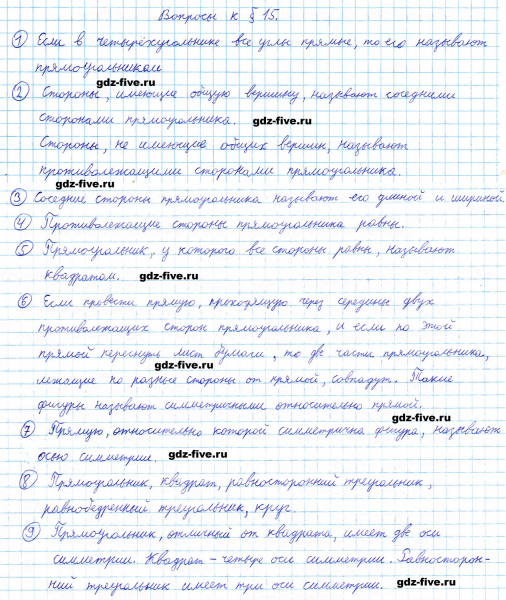 Вопросы к § 15.
① Если в четырёхугольнике все углы прямые, то его называют
прямоугольником
gdz-five.ru
② Стороны, имеющие общую вершину, называют соседними
сторонами прямоугольника. gdz-five.ru
Стороны, не имеющие общих вершин, называют
противолежащими сторонами прямоугольника.
gdz-five.ru
③ Соседние стороны прямоугольника называют его длиной и шириной.
④ Противолежащие стороны прямоугольника равны.
⑤ Прямоугольник, у которого все стороны равны, называют
квадратом. gdz-five.ru
⑥ Если провести прямую, проходящую через середины двух
противолежащих сторон прямоугольника, и если по этой
прямой перегнуть лист бумаги, то две части прямоугольника,
gdz-five.ru
лежащие по разные стороны от прямой, совпадут. Такие
фигуры называют симметричными относительно прямой.
gdz-five.ru
⑦ Прямую, относительно которой симметрична фигура, называют
осью симметрии. gdz-five.ru
⑧ Прямоугольник, квадрат, равносторонний треугольник,
равнобедренный треугольник, круг.
gdz-five.ru
⑨ Прямоугольник, отличный от квадрата, имеет две оси
симметрии. Квадрат – четыре оси симметрии. Равносторон-
ний треугольник имеет три оси симметрии. gdz-five.ru